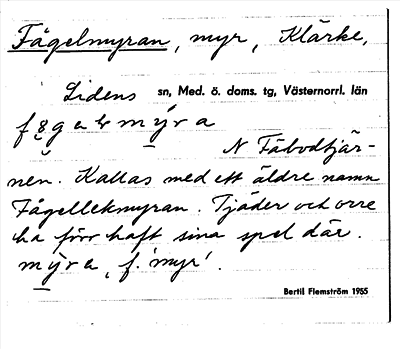 Fågelmyran, myr, Klärke,
Lidens sn, Med. ö. doms. tg, Västernorrl. län
N Fäbodtjär-
nen. Kallas med ett äldre namn
Fågellekmyran. Tjäder och orre
ha förr haft sina spel där.
f. 'myr'.
Bertil Flemström 1955